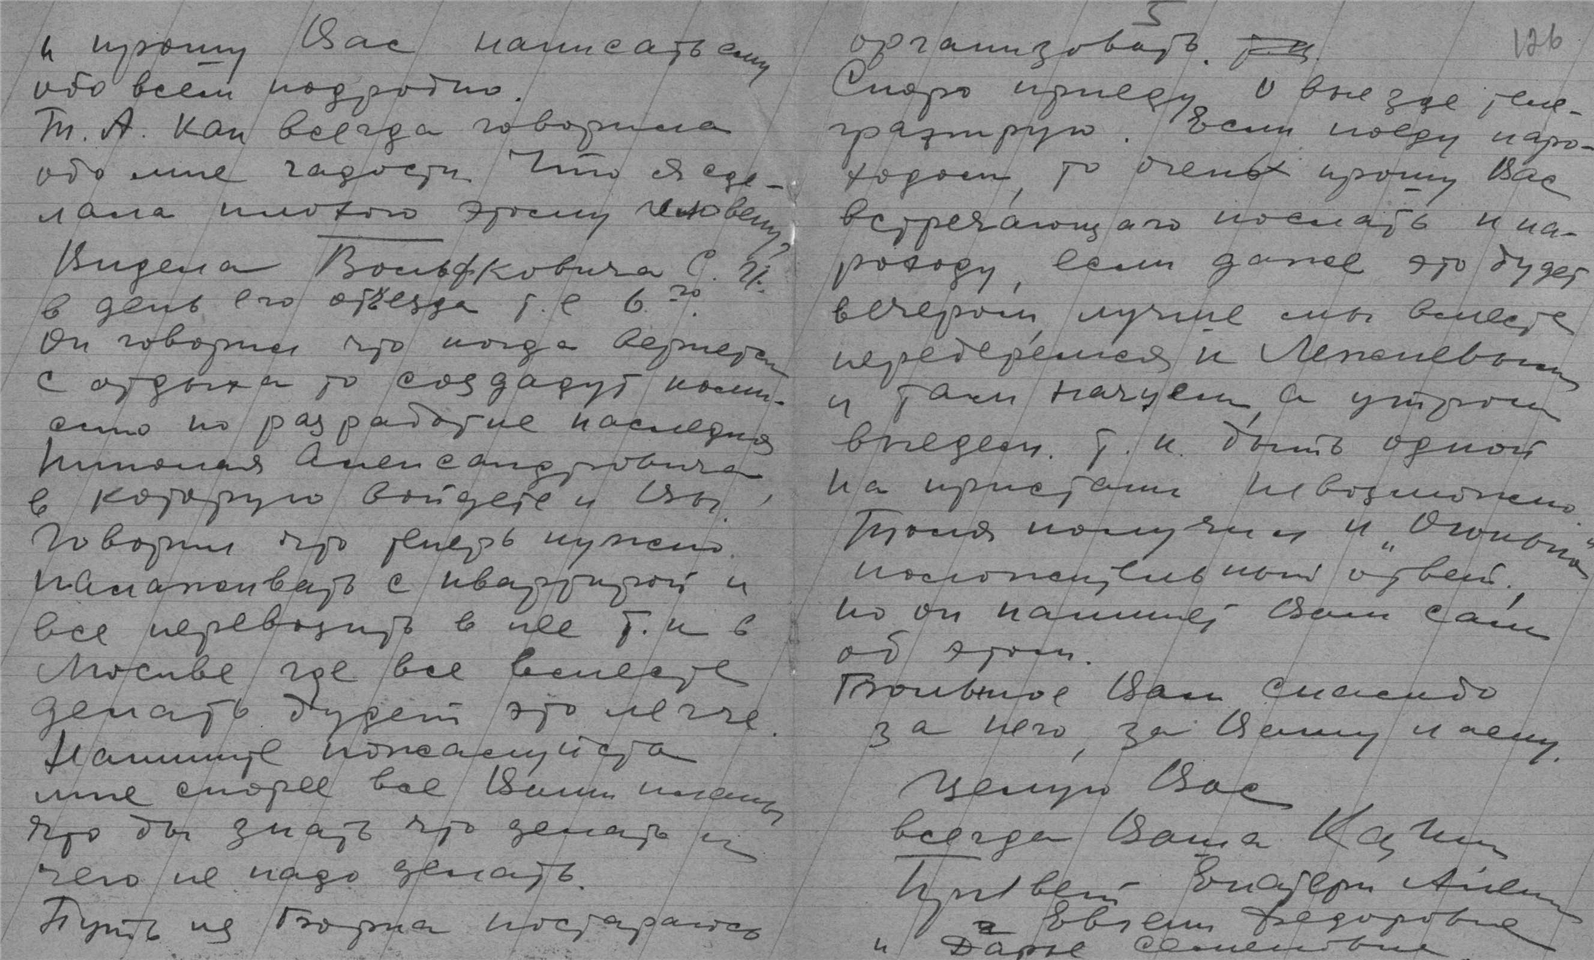 и прошу Вас написать ему
обо всем подробно.
Т. А. как всегда говорила
обо мне гадости. Что я сде-
лала плохого этому человеку?
Видела Вольфковича С. И.
в день его отъезда т.е 6го.
Он говорил что когда вернется
с отдыха то создадут комис-
сию по разработке наследия
Николая Александровича
в которую войдете и Вы.
Говорил что теперь нужно
налаживать с квартирой и
все перевозить в нее т.к в
Москве где все вместе
делать будет это легче.
Напишите пожалуйста
мне скорее все Ваши планы
что бы знать что делать и
чего не надо делать.
Путь из Борка постараюсь
5
126
организовать.
Скоро приеду. О выезде теле-
графирую. Если поеду паро-
ходом, то очень прошу Вас
встречающаго послать и па-
роходу, если даже это будет
вечером, лучше мы вместе
переберемся к
и там начуем, а утром
выедем. т.к. быть одной
на пристани невозможно.
Толя получил и „Огонька“
положительный ответ,
но он напишет Вам сам
об этом.
Большое Вам спасибо
за него, за Вашу ласку.
Целую Вас
всегда Ваша
Привет Екатерин Ален
Евгени Федоровне
и Дарье Семеновне